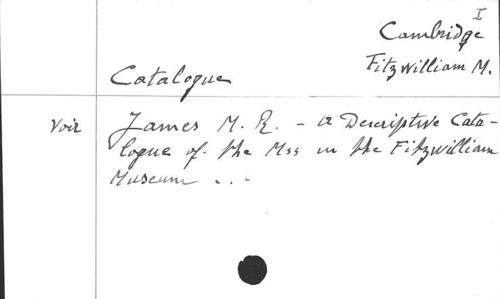 I
Cambridge
Fitzwilliam M.
Catalogue
Voir James M. R. - A Descriptive Cata-
logue of the Mss in the Fitzwilliam
Museum ...